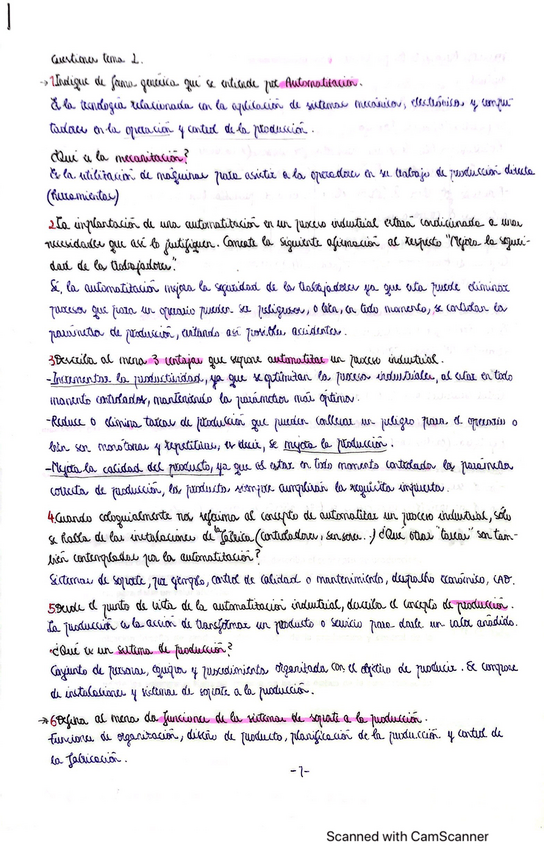 Cuestiones tema 2.
→1. Indique de forma genérica que se entiende por Automatización.
Es la tecnología relacionada con la aplicación de sistemas mecánicos, electrónicos y compu-
tadores en la operación y control de la producción.
¿Qué es la mecanización?
Es la utilización de máquinas para asistir a los operadores en su trabajo de producción directa
(herramientas)
2. La implantación de una automatización en un proceso industrial estará condicionada a unas
necesidades que así lo justifiquen. Comente la siguiente afirmación al respecto "Mejora la seguri-
dad de los trabajadores".
Sí, la automatización mejora la seguridad de los trabajadores ya que esta puede eliminar
procesos que para un operario pueden ser peligrosos, o bien, en todo momento, se controlan los
parámetros de producción, evitando así posibles accidentes.
3. Describa al menos 3 ventajas que supone automatizar un proceso industrial.
-Incrementar la productividad, ya que se optimizan los procesos industriales, al estar en todo
momento controlados, manteniendo los parámetros más óptimos.
-Reduce o elimina tareas de producción que pueden conllevar un peligro para el operario o
bien son monótonas y repetitivas, es decir, se mejora la producción.
-Mejora la calidad del producto, ya que al estar en todo momento controlados los parámetros
correctos de producción, los productos siempre cumplirán los requisitos impuestos.
4. Cuando coloquialmente nos referimos al concepto de automatizar un proceso industrial, sólo
se habla de las instalaciones de la fábrica (controladores, sensores...) ¿Qué otras "tareas" son tam-
bién contempladas por la automatización?
Sistemas de soporte, por ejemplo, control de calidad o mantenimiento, despacho económico, CAD.
5. Desde el punto de vista de la automatización industrial, describa el concepto de producción.
La producción es la acción de transformar un producto o servicio para darle un valor añadido.
·¿Qué es un sistema de producción?
Conjunto de personas, equipos y procedimientos organizados con el objetivo de producir. Se compone
de instalaciones y sistemas de soporte a la producción.
→6. Defina al menos dos funciones de los sistemas de soporte a la producción.
Funciones de organización, diseño de producto, planificación de la producción y control de
la fabricación.
-7-
Scanned with CamScanner